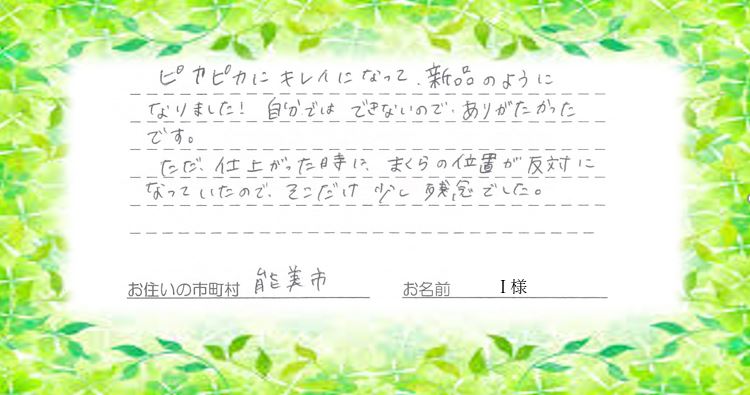 ピカピカにキレイになって、新品のように
なりました! 自分では できないので、ありがたかった
です。
ただ、仕上がった時に、まくらの位置が反対に
なっていたので、そこだけ 少し 残念でした。
お住いの市町村 能美市 お名前 I 様